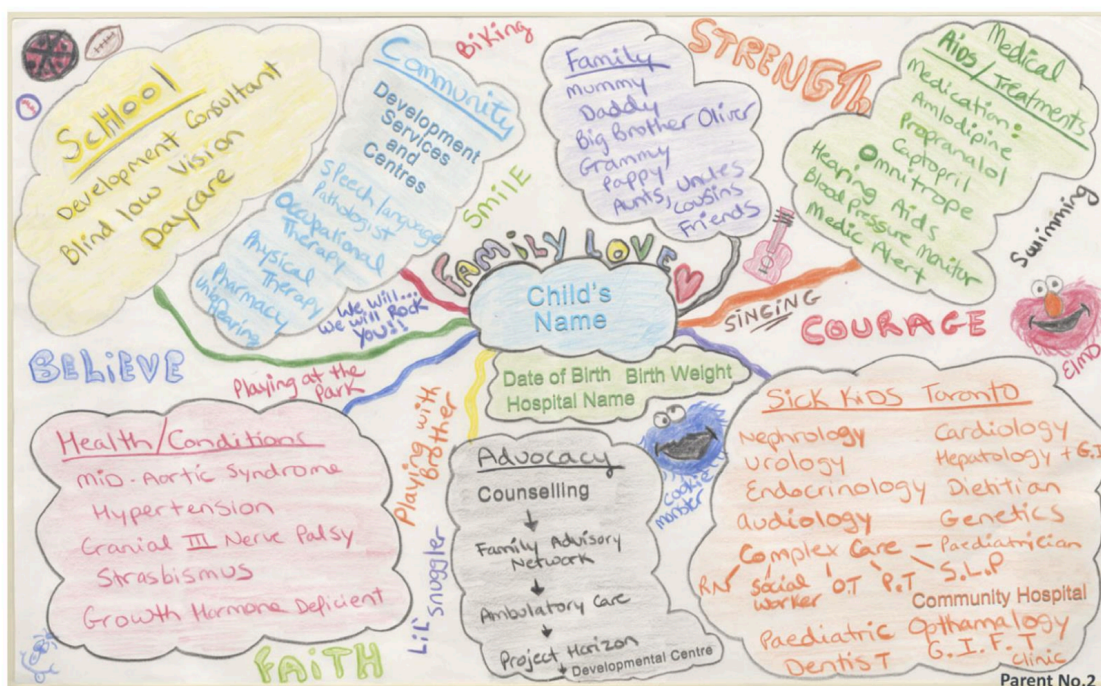 SCHOOL
Development Consultant
Blind low Vision
Daycare
Community
Development
Services
and
Centres
Speech/language
Pathologist
Occupational
Therapy
Physical
Therapy
Pharmacy
Hearing
BiKing
SmilE
Family
mummy
Daddy
Big Brother Oliver
Grammy
Pappy
Aunts, Uncles
cousins
Friends
STRENGTH
Medical
AiDs/Treatments
Medication:
Amlodipine
Propranalol
Captopril
Omnitrope
Hearing Aids
Blood Pressure Monitor
Medic Alert
Swimming
FAMiLY LOVE
We Will...
we will Rock
You!!
Child's
Name
SiNGiN
COURAGE
ElmO
BELiEVE
Playing at the
Park
Date of Birth Birth Weight
Hospital Name
Playing with
Brother
cookie
monster
Health/Conditions
MiD-Aortic Syndrome
Hypertension
Cranial III Nerve Palsy
Strasbismus
Growth Hormone Deficient
FAiTH
LiL' snuggler
Advocacy
Counselling
Family Advisory
Network
Ambulatory Care
Project Horizon
Developmental Centre
Sick KiDS Toronto
Nephrology
Cardiology
Urology
Hepatology + G.I
Endocrinology
Dietitian
audiology
Genetics
Complex Care - Paediatrician
RN Social Worker O.T P.T S.L.P
Community Hospital
Paediatric
Dentist
Opthamalogy
G.I.F.T
Clinic
Parent No.2